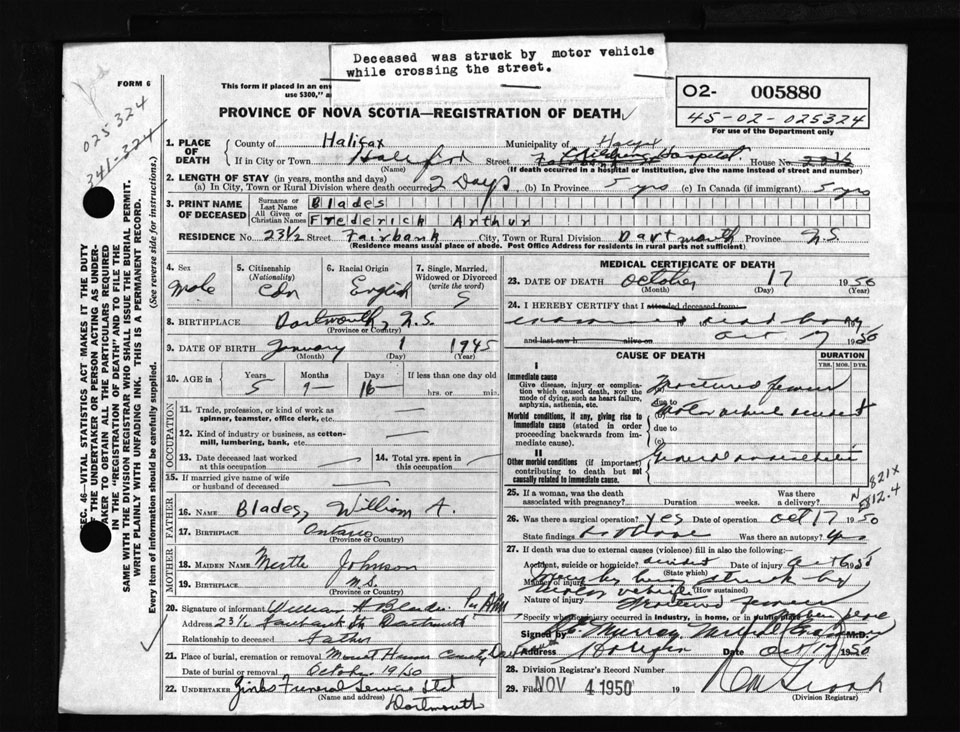 Deceased was struck by motor vehicle
while crossing the street.
FORM 6
This form if placed in an env
use $300," a
PROVINCE OF NOVA SCOTIA—REGISTRATION OF DEATH
O2- 005880
45-02-025324
For use of the Department only
025324
341-324
SEC. 46—VITAL STATISTICS ACT MAKES IT THE DUTY
OF THE UNDERTAKER OR PERSON ACTING AS UNDER-
TAKER TO OBTAIN ALL THE PARTICULARS REQUIRED
IN THE "REGISTRATION OF DEATH" AND TO FILE THE
SAME WITH THE DIVISION REGISTRAR WHO SHALL ISSUE THE BURIAL PERMIT.
WRITE PLAINLY WITH UNFADING INK. THIS IS A PERMANENT RECORD.
Every item of information should be carefully supplied. (See reverse side for instructions.)
1. PLACE OF DEATH County of Halifax Municipality of Halifax
If in City or Town Halifax Street Children's Hospital House No. 23½
(Name) (If death occurred in a hospital or institution, give the name instead of street and number)
2. LENGTH OF STAY (in years, months and days)
(a) In City, Town or Rural Division where death occurred 2 Days (b) In Province 5 yrs (c) In Canada (if immigrant) 5 yrs
3. PRINT NAME OF DECEASED Surname or Last Name Blades
All Given or Christian Names Frederick Arthur
RESIDENCE No. 23½ Street Fairbank City, Town or Rural Division Dartmouth Province N.S.
(Residence means usual place of abode. Post Office Address for residents in rural parts not sufficient)
4. Sex Male
5. Citizenship (Nationality) Cdn
6. Racial Origin English
7. Single, Married, Widowed or Divorced (write the word) S
8. BIRTHPLACE Dartmouth, N.S.
(Province or Country)
9. DATE OF BIRTH January 1 1945
(Month) (Day) (Year)
10. AGE in Years 5 Months 9 Days 16 If less than one day old
hrs. or min.
OCCUPATION
11. Trade, profession, or kind of work as spinner, teamster, office clerk, etc.
12. Kind of industry or business, as cotton-mill, lumbering, bank, etc.
13. Date deceased last worked at this occupation
14. Total yrs. spent in this occupation
15. If married give name of wife or husband of deceased
FATHER
16. NAME Blades, William A.
17. BIRTHPLACE Ontario
(Province or Country)
MOTHER
18. MAIDEN NAME Johnson
19. BIRTHPLACE N.S.
(Province or Country)
20. Signature of informant William A Blades Per
Address 23½ Fairbank St Dartmouth
Relationship to deceased father
21. Place of burial, cremation or removal Mount
Date of burial or removal October 19/50
22. UNDERTAKER Funeral Service Ltd
(Name and address) Dartmouth
MEDICAL CERTIFICATE OF DEATH
23. DATE OF DEATH October 17 1950
(Month) (Day) (Year)
24. I HEREBY CERTIFY that I attended deceased from:
examined dead body
and last saw h alive on Oct 17 1950
CAUSE OF DEATH DURATION
YRS. MOS. DYS.
I
Immediate cause
Give disease, injury or complica-
tion which caused death, NOT the
mode of dying, such as heart failure,
asphyxia, asthenia, etc.
(a) Fractured femur
due to
Morbid conditions, if any, giving rise to
immediate cause (stated in order
proceeding backwards from im-
mediate cause).
(b) Motor vehicle accident
due to
(c)
II
Other morbid conditions (if important)
contributing to death but not
causally related to immediate cause.
General
N 821X
12.4
25. If a woman, was the death associated with pregnancy? Duration weeks. Was there a delivery?
26. Was there a surgical operation? yes Date of operation Oct 17 1950
State findings Was there an autopsy? yes
27. If death was due to external causes (violence) fill in also the following:—
Accident, suicide or homicide? accident Date of injury Oct 1950
(State which)
Manner of injury by being struck by
motor vehicle (How sustained)
Nature of injury Fractured femur
Specify whether injury occurred in industry, in home, or in public place
Signed by Murray M.D.
Address Halifax Date Oct 17 1950
28. Division Registrar's Record Number
29. Filed NOV 4 1950 19
(Division Registrar)